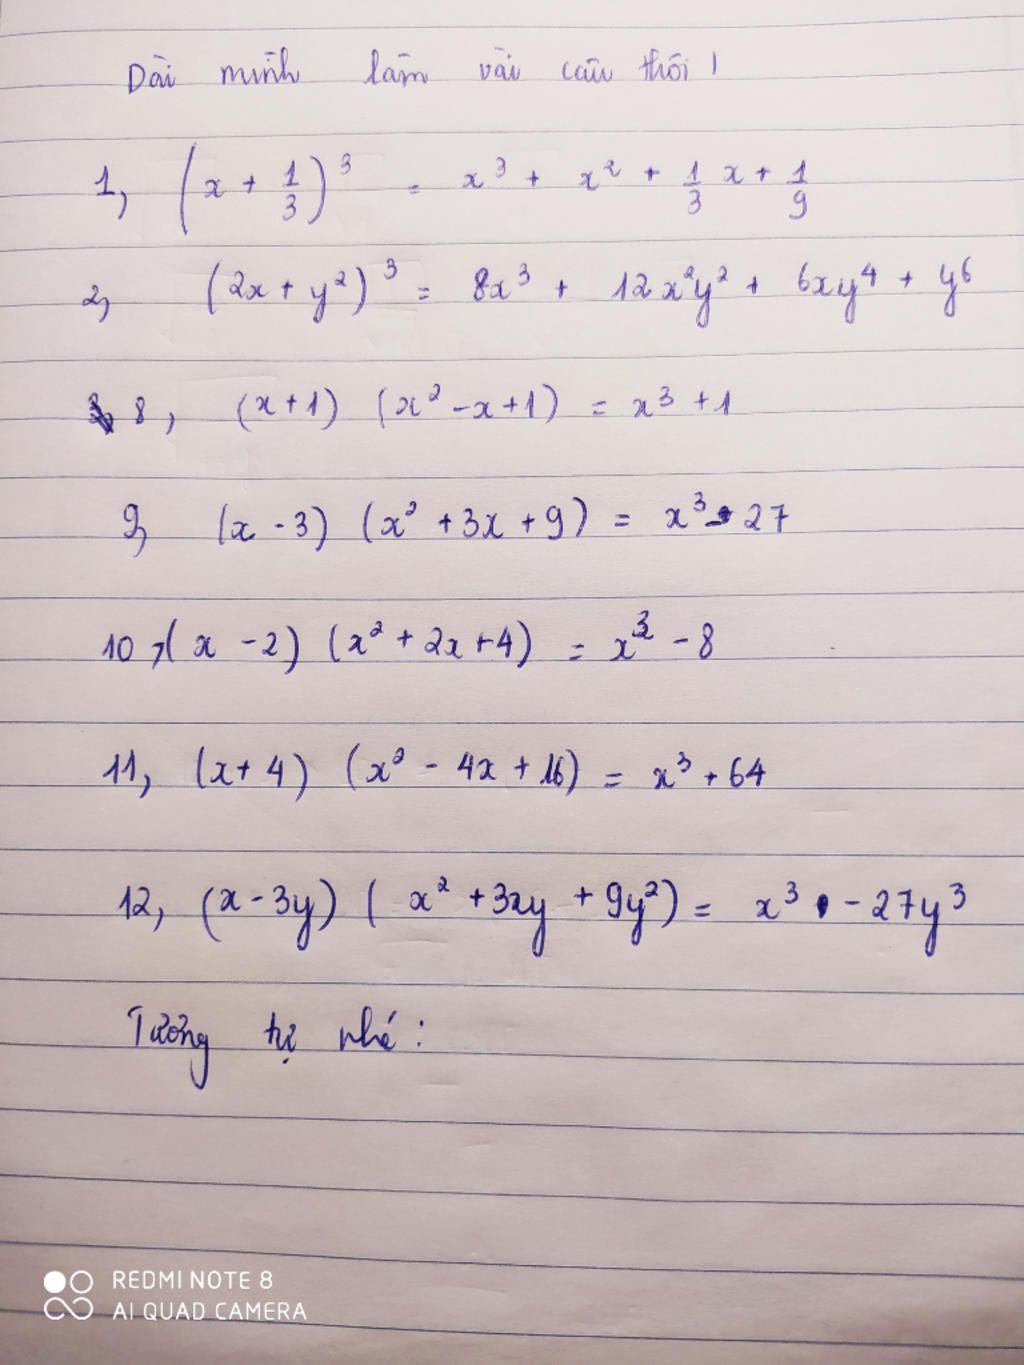 Dài mình làm vài câu thôi !
1, (x + 1/3)³ = x³ + x² + 1/3 x + 1/9
2, (2x + y²)³ = 8x³ + 12x²y² + 6xy⁴ + y⁶
8, (x+1) (x² - x + 1) = x³ + 1
9, (x - 3) (x² + 3x + 9) = x³ - 27
10, (x - 2) (x² + 2x + 4) = x³ - 8
11, (x + 4) (x² - 4x + 16) = x³ + 64
12, (x - 3y) (x² + 3xy + 9y²) = x³ - 27y³
Tương tự nhé :
REDMI NOTE 8
AI QUAD CAMERA